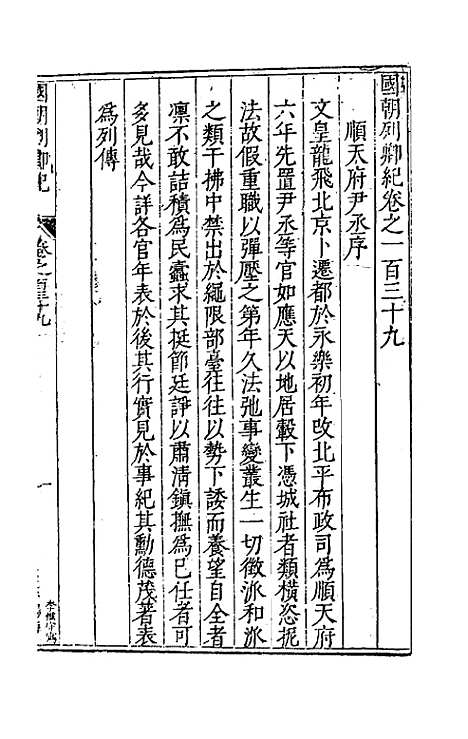 國朝列卿紀卷之一百三十九
順天府尹丞序
文皇龍飛北京卜遷都於永樂初年改北平布政司爲順天府
六年先置尹丞等官如應天以地居轂下憑城社者類橫恣扼
法故假重職以彈壓之第年久法弛事變叢生一切徵派和派
之類干拂中禁出於繩限部臺往往以勢下諉而養望自全者
凛不敢詰積爲民蠹求其挺節廷諍以肅清鎭撫爲已任者可
多見哉今詳各官年表於後其行實見於事紀其勳德茂著表
爲列傳
國朝列卿紀
卷之一百三十九
一